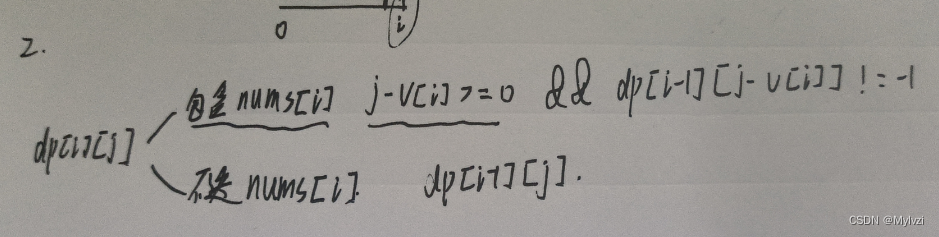 0 i
2.
包含 nums[i] j-v[i] >=0 && dp[i-1][j-v[i]] != -1
dp[i][j]
不选 nums[i]. dp[i-1][j].
CSDN @Mylvzi